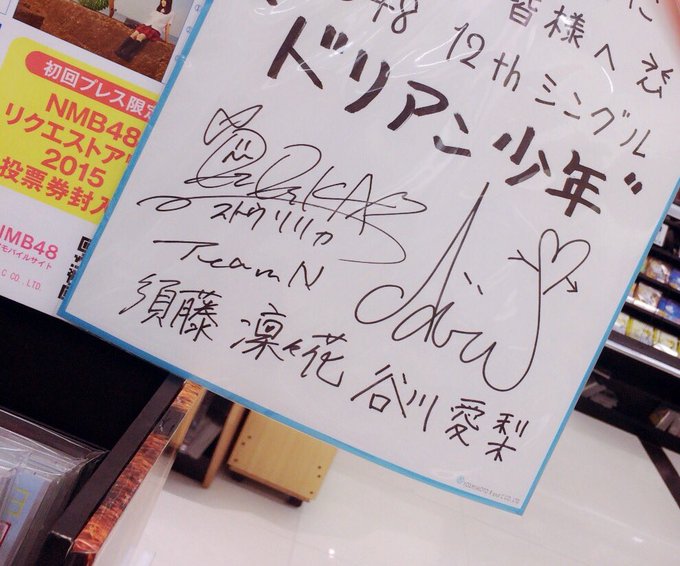 皆様へ
48 12thシングル
ドリアン少年"
ストウリリカ
TeamN
須藤 凜々花 谷川 愛梨
初回プレス限定
NMB48
リクエストア
2015
投票券封入
NMB48
モバイルサイト
CO., LTD.